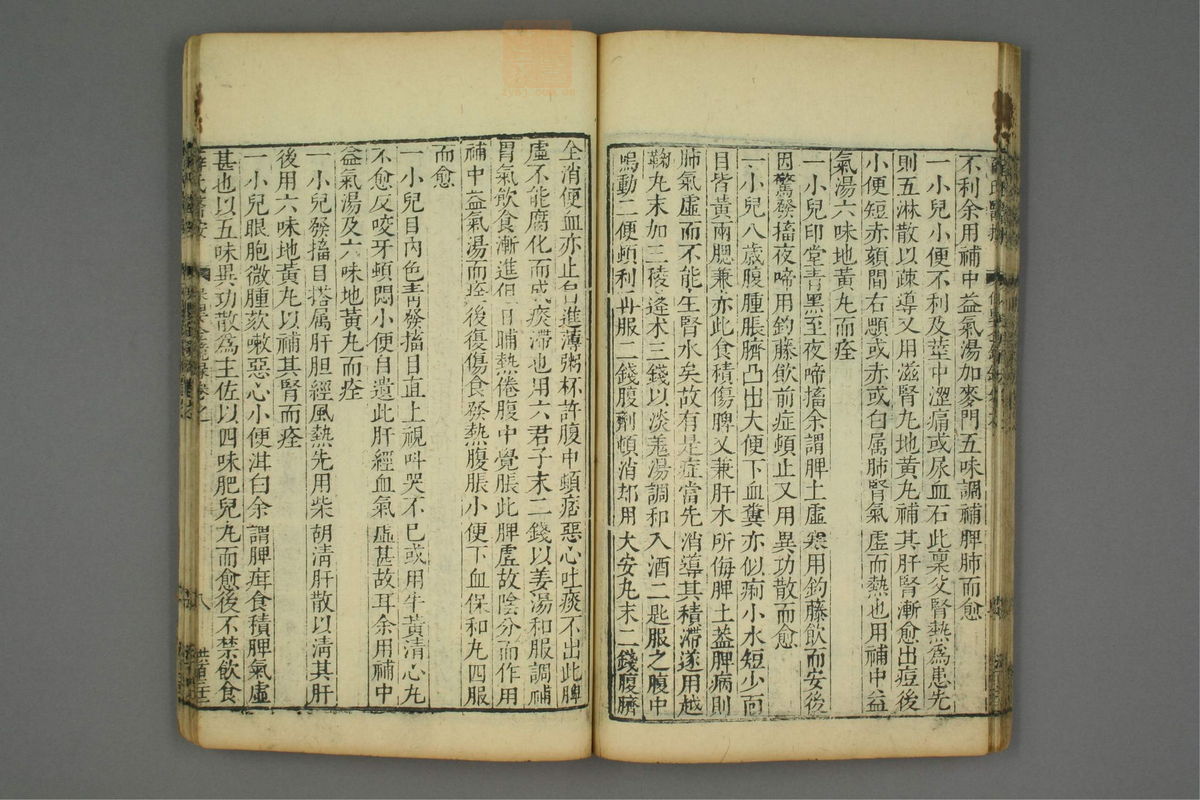 不利余用補中益氣湯加麥門五味調補脾肺而愈
一小兒小便不利及莖中澀痛或尿血石此稟父腎熱為患先
則五淋散以疎導又用滋腎丸地黃丸補其肝腎漸愈出痘後
小便短赤頦間右顋或赤或白属肺腎氣虛而熱也用補中益
氣湯六味地黃丸而痊
一小兒印堂青黑至夜啼搐余謂脾土虛寒用鈎藤飲而安後
因驚發搐夜啼用鈎藤飲前症頓止又用異功散而愈
一小兒八歲腹腫脹臍凸出大便下血糞亦似痢小水短少面
目皆黃兩腮兼赤此食積傷脾又兼肝木所侮脾土葢脾病則
肺氣虛而不能生腎水矣故有是症當先消導其積滯遂用越
鞠丸末加三稜蓬术三錢以淡姜湯調和入酒二匙服之腹中
嗚動二便頓利再服二錢腹劑頓消却用大安丸末二錢腹臍
全消便血亦止每進薄粥杯許腹中頓痞惡心吐痰不出此脾
虛不能腐化而成痰滯也用六君子末二錢以姜湯和服調補
胃氣飲食漸進但日晡熱倦腹中覺脹此脾虛故陰分而作用
補中益氣湯而痊後復傷食發熱腹脹小便下血保和丸四服
而愈
一小兒目內色青發搐目直上視呌哭不已或用牛黃清心丸
不愈反咬牙頓悶小便自遺此肝經血氣虛甚故耳余用補中
益氣湯及六味地黃丸而痊
一小兒發搐目搭属肝胆經風熱先用柴胡清肝散以清其肝
後用六味地黃丸以補其腎而痊
一小兒眼胞微腫欬嗽惡心小便泔白余謂脾疳食積脾氣虛
甚也以五味異功散為主佐以四味肥兒丸而愈後不禁飲食
薛氏醫按
八